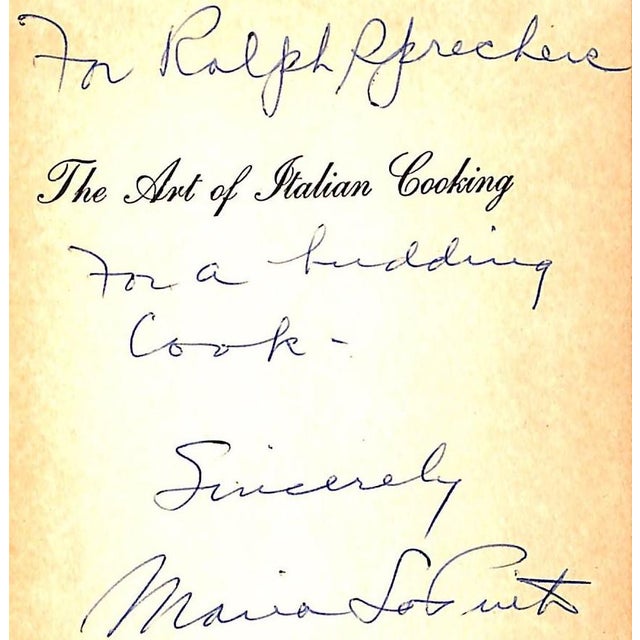 For Ralph Sprecher
The Art of Italian Cooking
For a budding
Cook -
Sincerely
Maria Lo Pinto